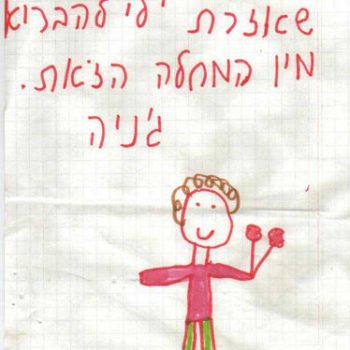 שאוזרת לי להברוא
מין המחלה הזאת.
ג'ניה